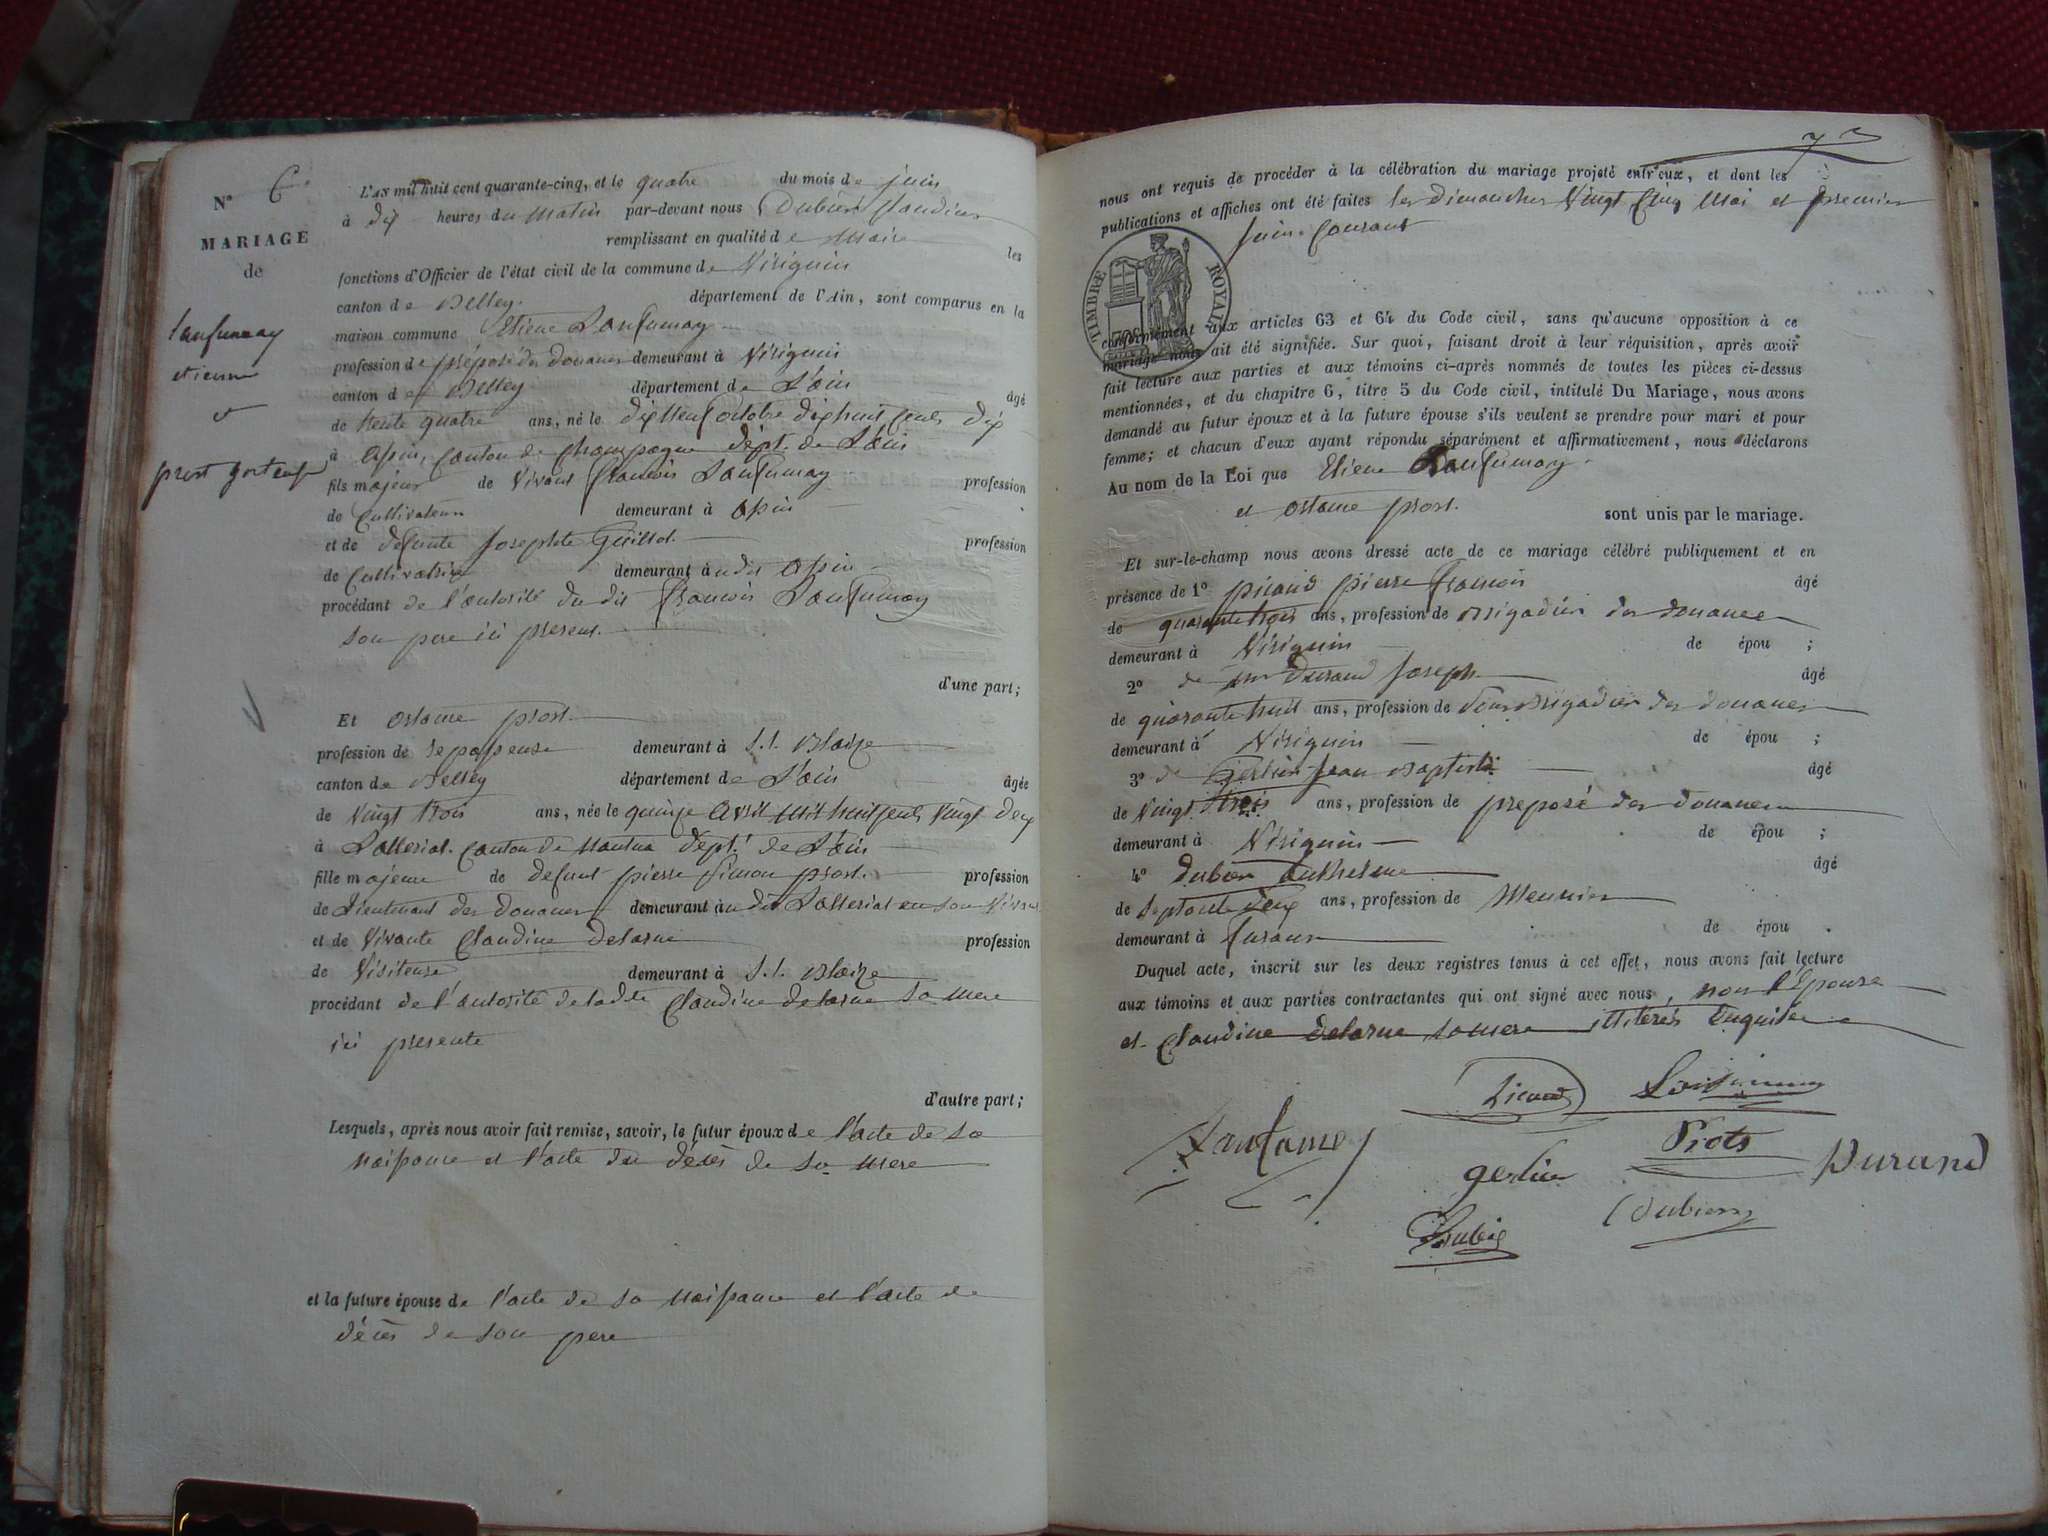 N° 6.
MARIAGE
de
Lanfumay
etienne
et
prost hortense
L'AN mil huit cent quarante-cinq, et le quatre du mois de juin
à dix heures du matin par-devant nous Dubien Claudius
remplissant en qualité de Maire les
fonctions d'Officier de l'état civil de la commune de Virignin
canton de Belley. département de l'Ain, sont comparus en la
maison commune Etiene Lanfumay
profession de préposé des douanes demeurant à Virignin
canton de Belley département de L'ain âgé
de trente quatre ans, né le dix neuf octobre dix huit cents dix
à Apin, canton de Champagne dépt. de L'ain
fils majeur de vivant francois Lanfumay profession
de Cultivateur demeurant à Apin
et de defunte Josephte Guillot profession
de Cultivatrice demeurant à udit Apin
procédant de l'autorité du dit francois Lanfumay
son pere ici present.
d'une part;
Et ostance prost
profession de repasseuse demeurant à S.t. Blaize
canton de Belley département de L'ain âgée
de vingt trois ans, née le quinze avril mil huit cent vingt deux
à Lalleriat. canton de Nantua dépt. de L'ain
fille majeure de defunt pierre Simon prost. profession
de Lieutenant des douanes demeurant à udit Lalleriat en son vivant
et de vivante Claudine delarue profession
de Visiteuse demeurant à S.t. Blaize
procédant de l'autorité de ladite Claudine delarue sa mere
ici presente
d'autre part;
Lesquels, après nous avoir fait remise, savoir, le futur époux de l'acte de sa
naissance et l'acte du décès de sa mere
et la future épouse de l'acte de sa naissance et l'acte de
décès de son pere
73
nous ont requis de procéder à la célébration du mariage projeté entr'eux, et dont les
publications et affiches ont été faites les dimanches vingt cinq mai et premier
juin courant
TIMBRE ROYAL
conformément aux articles 63 et 64 du Code civil, sans qu'aucune opposition à ce
mariage nous ait été signifiée. Sur quoi, faisant droit à leur réquisition, après avoir
fait lecture aux parties et aux témoins ci-après nommés de toutes les pièces ci-dessus
mentionnées, et du chapitre 6, titre 5 du Code civil, intitulé Du Mariage, nous avons
demandé au futur époux et à la future épouse s'ils veulent se prendre pour mari et pour
femme; et chacun d'eux ayant répondu séparément et affirmativement, nous déclarons
Au nom de la Loi que Etiene Lanfumay
et ostance prost. sont unis par le mariage.
Et sur-le-champ nous avons dressé acte de ce mariage célébré publiquement et en
présence de 1° picaud pierre francois âgé
de quarante trois ans, profession de Brigadier des douanes
demeurant à Virignin de épou ;
2° de durand Joseph âgé
de quarante huit ans, profession de sous Brigadier des douanes
demeurant à Virignin de épou ;
3° de Gerlier Jean Baptiste âgé
de vingt trois ans, profession de preposé des douanes
demeurant à Virignin de épou ;
4° dubien anthelme âgé
de septante deux ans, profession de Meunier
demeurant à de épou .
Duquel acte, inscrit sur les deux registres tenus à cet effet, nous avons fait lecture
aux témoins et aux parties contractantes qui ont signé avec nous, non l'Epouse
et Claudine delarue sa mere illiterés enquises
Picaud
Prots
Durand
gerlier
Dubien